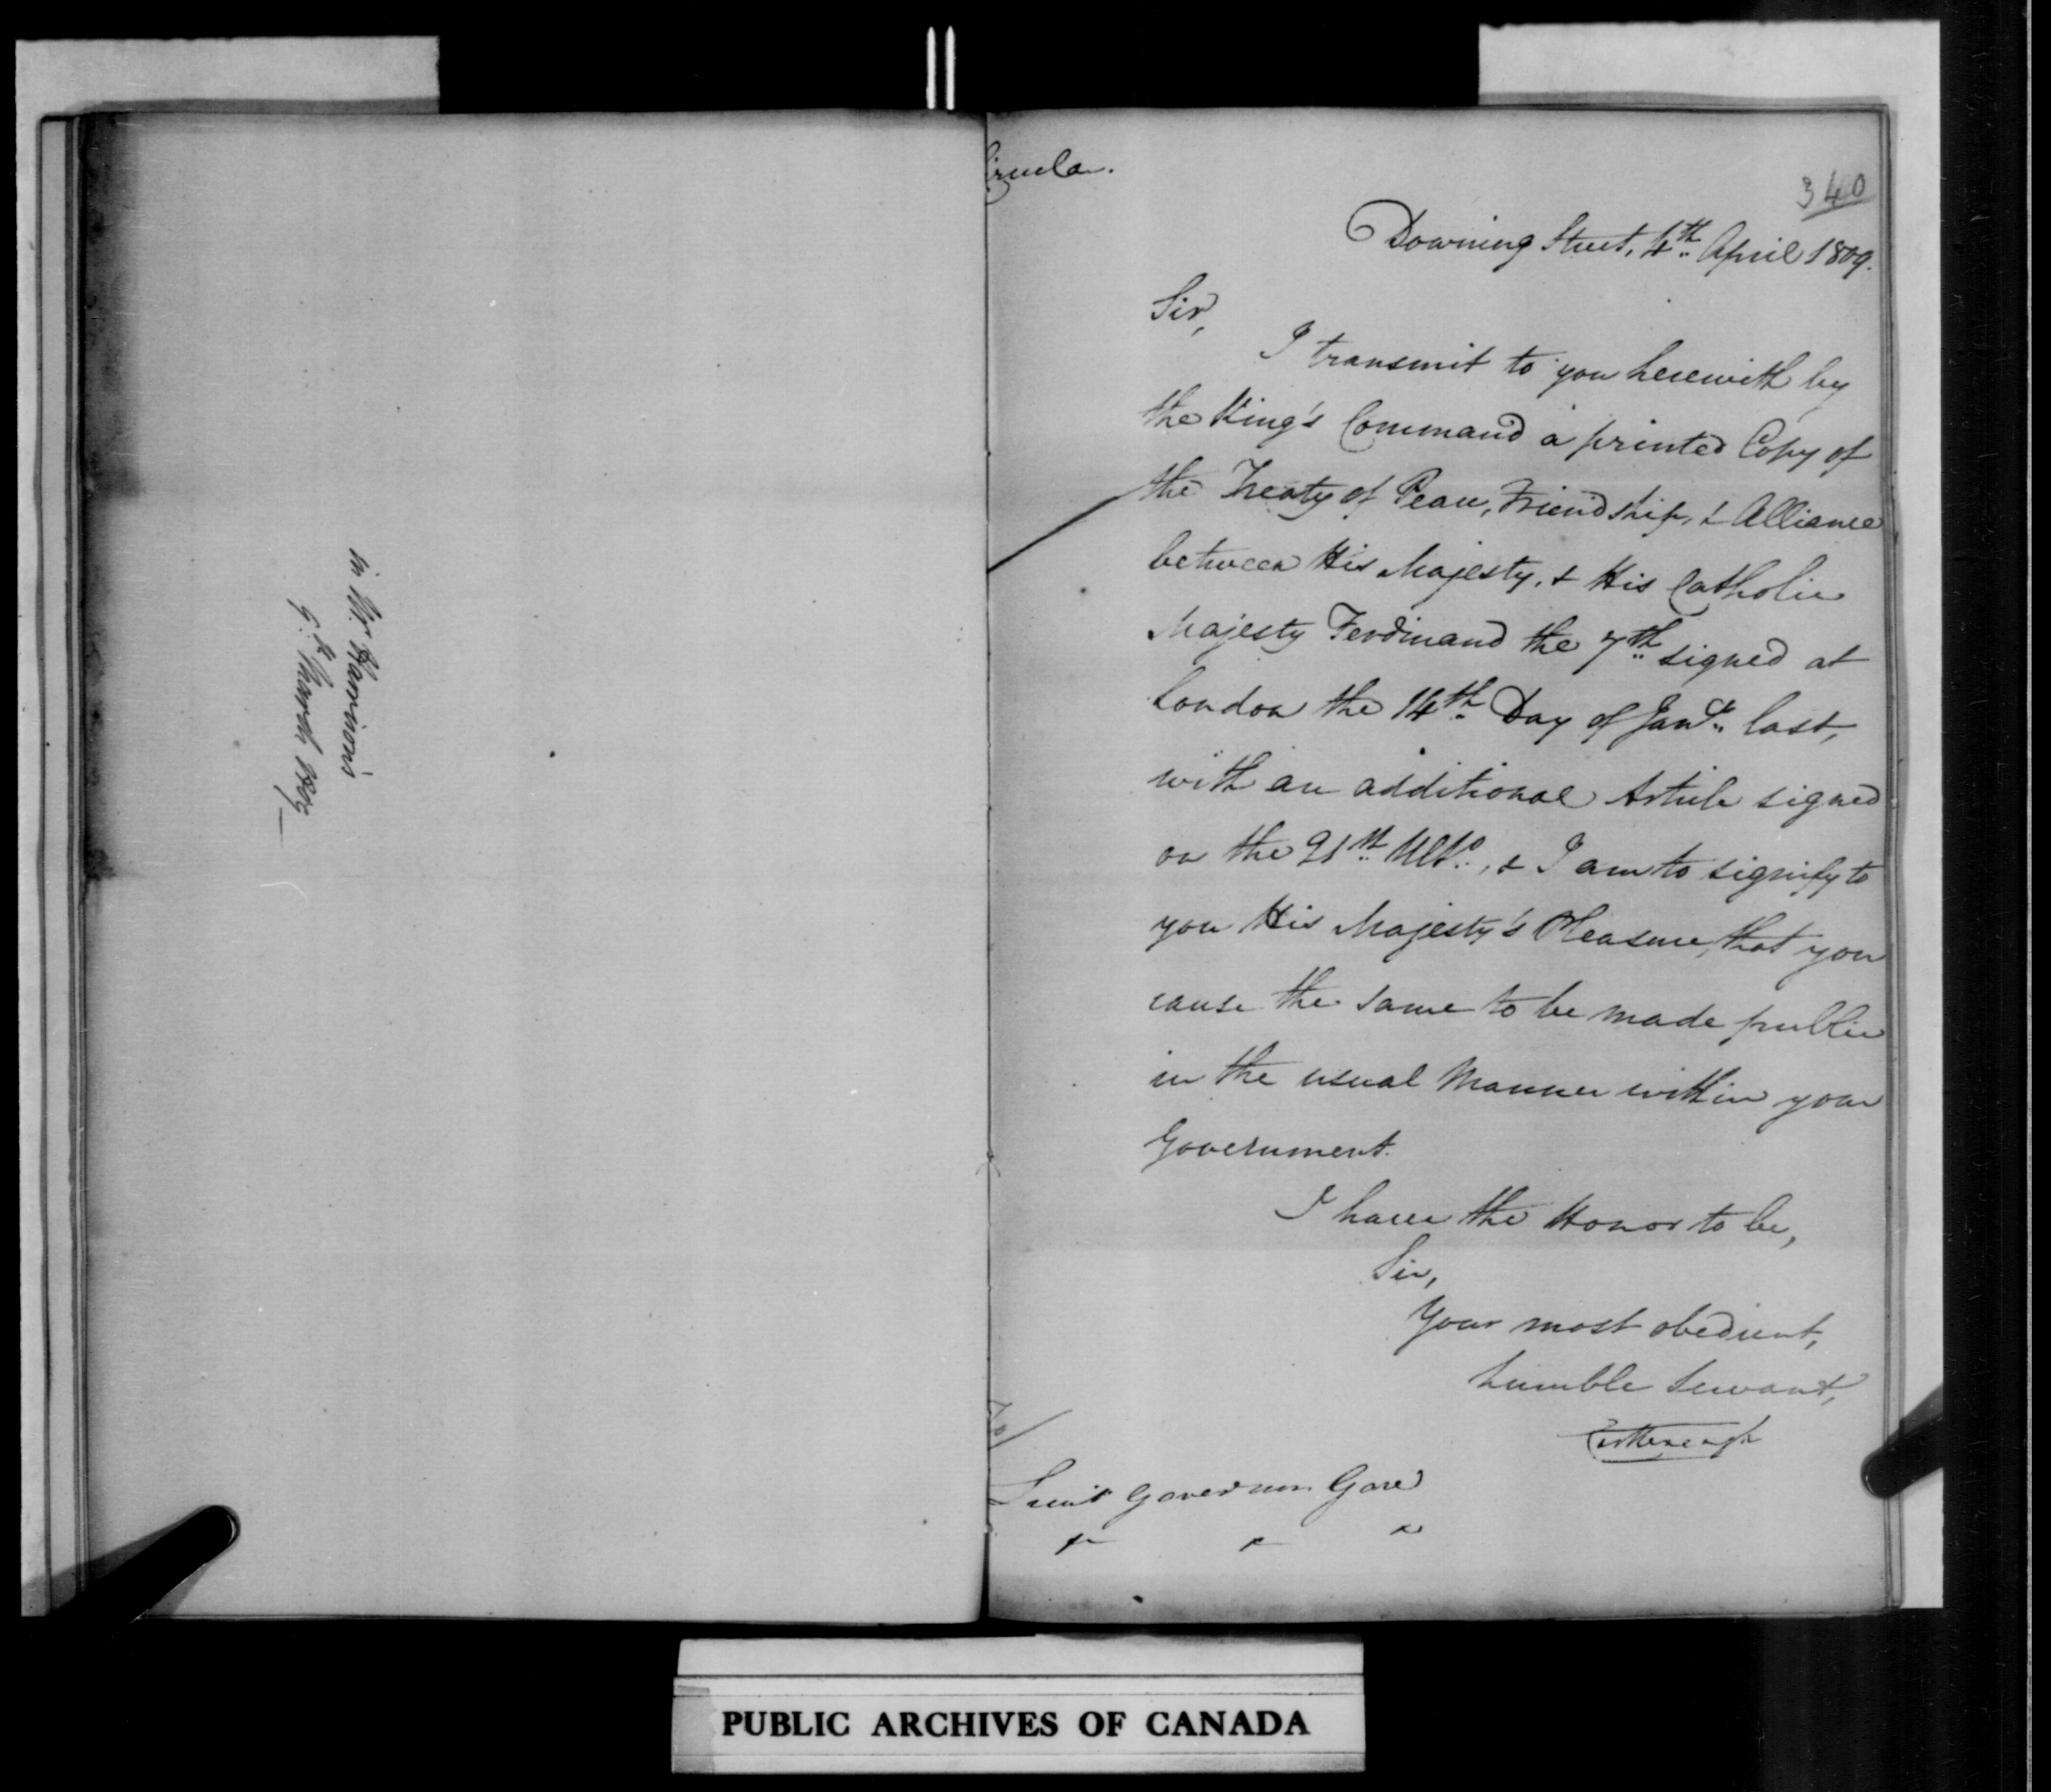 in Mr. Harrison's
9th March 1809
Circular.
340
Downing Street, 4th April 1809.
Sir,
I transmit to you herewith by
the King's Command a printed Copy of
the Treaty of Peace, Friendship, & Alliance
between His Majesty, & His Catholic
Majesty Ferdinand the 7th signed at
London the 14th Day of Jany last,
with an additional Article signed
on the 21st Ulto, & I am to signify to
you His Majesty's Pleasure, that you
cause the same to be made public
in the usual Manner within your
Government.
I have the Honor to be,
Sir,
Your most obedient,
humble Servant,
Castlereagh
Lieut Governor Gore
PUBLIC ARCHIVES OF CANADA